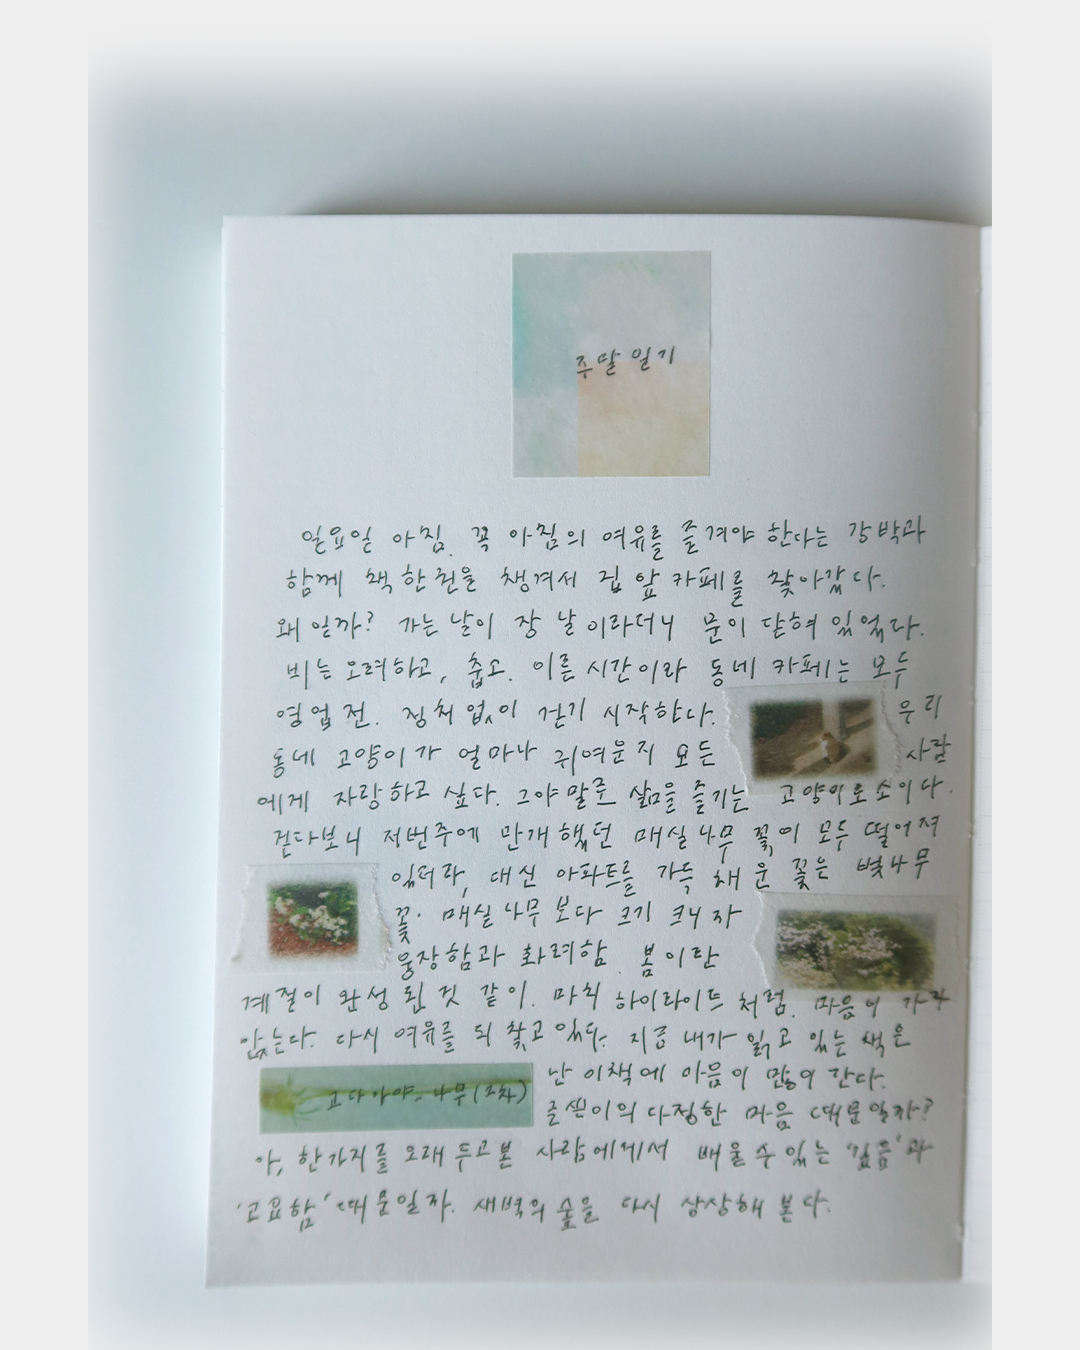 주말 일기
일요일 아침. 꼭 아침의 여유를 즐겨야 한다는 강박과
함께 책 한권을 챙겨서 집 앞 카페를 찾아갔다.
왜일까? 가는 날이 장 날이라더니 문이 닫혀 있었다.
비는 오려하고, 춥고. 이른 시간이라 동네 카페는 모두
영업 전. 정처 없이 걷기 시작한다. 우리
동네 고양이가 얼마나 귀여운지 모든 사람
에게 자랑하고 싶다. 그야말로 삶을 즐기는 고양이로소이다.
걷다보니 저번주에 만개했던 매실나무 꽃이 모두 떨어져
있더라, 대신 아파트를 가득 채운 꽃은 벚나무
꽃. 매실나무 보다 크기 크니 자
웅장함과 화려함. 봄이란
계절이 완성 된 것 같이. 마치 하이라이트 처럼. 마음이 가라
앉는다. 다시 여유를 되찾고 있다. 지금 내가 읽고 있는 책은
고다 아야, 나무 (2차) 난 이책에 마음이 많이 간다.
글쓴이의 다정한 마음 때문일까?
아, 한가지를 오래 두고 본 사람에게서 배울 수 있는 '깊음'과
'고요함' 때문일지. 새벽의 숲을 다시 상상해 본다.